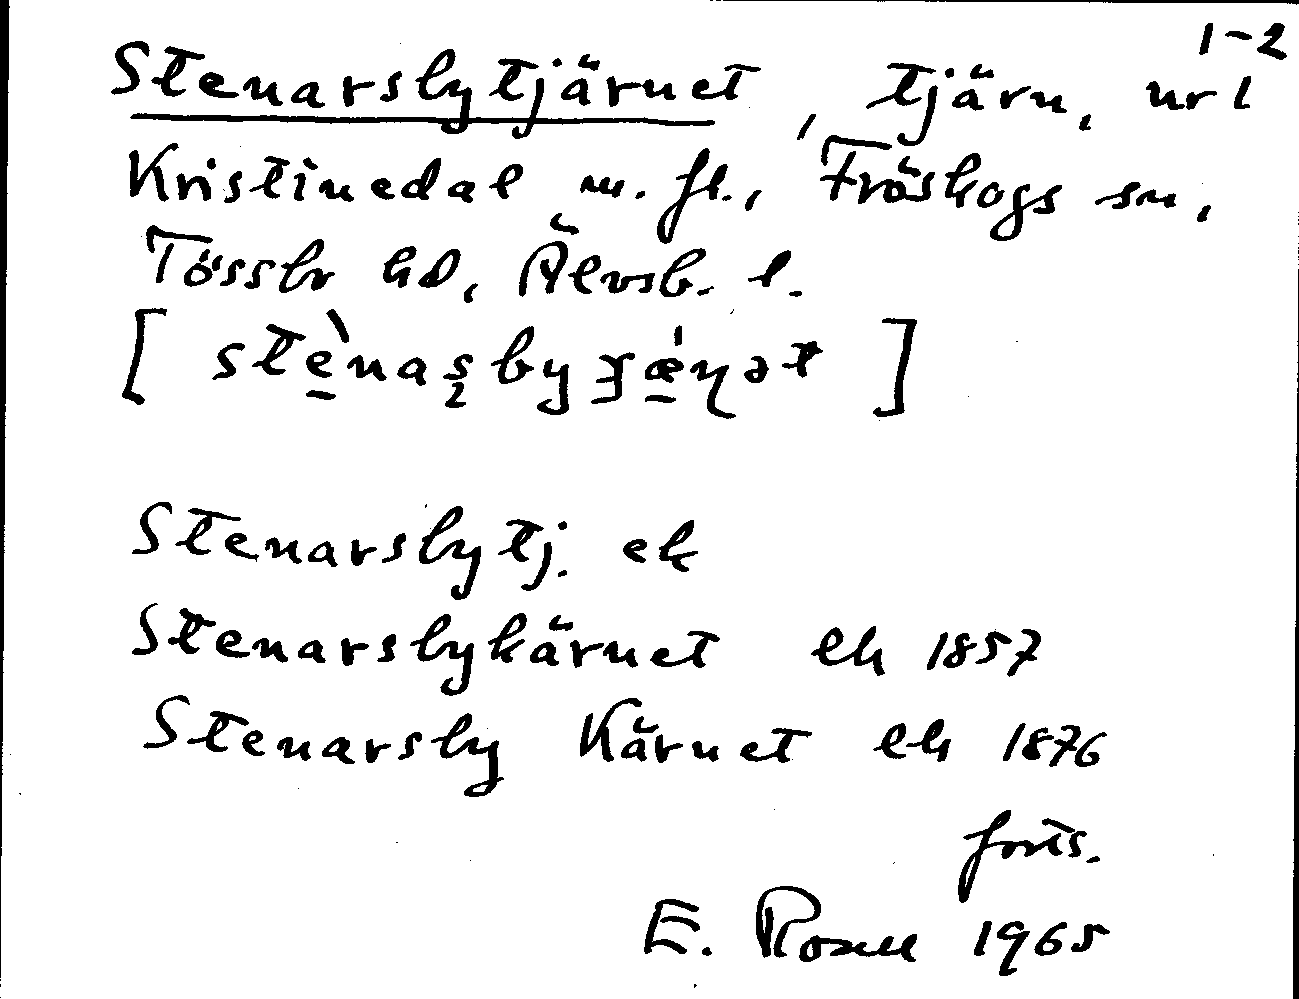 1-2
Stenarsbytjärnet, tjärn, ur l
Kristinedal m. fl., Fröskogs sn,
Tössbr hd, Älvsb. l.
[ stè̱naʂbyɟǽ̱ɳət ]
Stenarsbytj. ek
Stenarsbykärnet lh 1857
Stenarsby Kärnet lh 1876
forts.
E. Rosell 1965